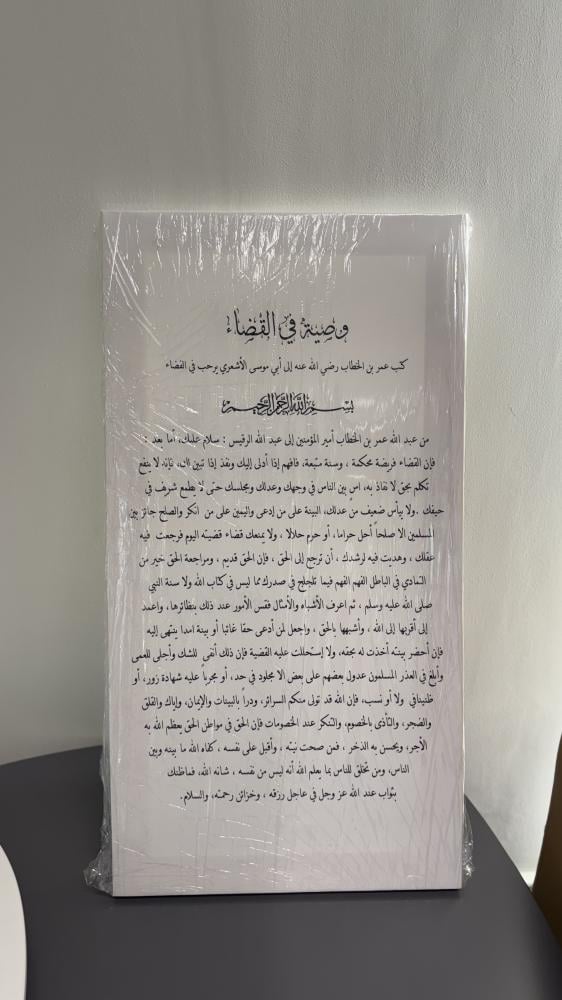 وصية في القضاء
كتب عمر بن الخطاب رضي الله عنه إلى أبي موسى الأشعري يرحب في القضاء
بسم الله الرحمن الرحيم
من عبد الله عمر بن الخطاب أمير المؤمنين إلى عبد الله الرقيس : سلام عليك، أما بعد :
فإن القضاء فريضة محكمة ، وسنة متبعة، فافهم إذا أدلى إليك ونفذ إذا تبين لك، فإنه لا ينفع
تكلم بحق لا نفاذ به، اس بين الناس في وجهك وعدلك ومجلسك حتى لا يطمع شريف في
حيفك .ولا ييأس ضعيف من عدلك، البينة على من إدعى واليمين على من انكر والصلح جائز بين
المسلمين الا صلحاً أحل حراما، أو حرم حلالا ، ولا يمنعك قضاء قضيته اليوم فرجعت فيه
عقلك ، وهديت فيه لرشدك ، أن ترجع إلى الحق ، فإن الحق قديم ، ومراجعة الحق خير من
التمادي في الباطل الفهم الفهم فيما تلجلج في صدرك مما ليس في كتاب الله ولا سنة النبي
صلى الله عليه وسلم ، ثم اعرف الأشباه والأمثال فقس الأمور عند ذلك بنظائرها، واعمد
إلى أقربها إلى الله ، وأشبهها بالحق ، واجعل لمن أدعى حقا غائبا أو بينة امدا ينتهى إليه
فإن أحضر بينته أخذت له بحقه، ولا إستحللت عليه القضية فإن ذلك أنفى للشك وأجلى للعمى
وأبلغ في العذر المسلمون عدول بعضهم على بعض الا مجلود في حد، أو مجرباً عليه شهادة زور، أو
ظنينافي ولا أو نسب، فإن الله قد تولى منكم السرائر، ودرا بالبينات والإيمان، وإياك والقلق
والضجر، والتأذى بالخصوم، والتنكر عند الخصومات فإن الحق في مواطن الحق يعظم الله به
الأجر، ويحسن به الذخر ، فمن صحت نيته ، وأقبل على نفسه ، كفاه الله ما بينه وبين
الناس، ومن تخلق للناس بما يعلم الله أنه ليس من نفسه ، شانه الله، فماظنك
بثواب عند الله عز وجل في عاجل رزقه ، وخزائن رحمته، والسلام.